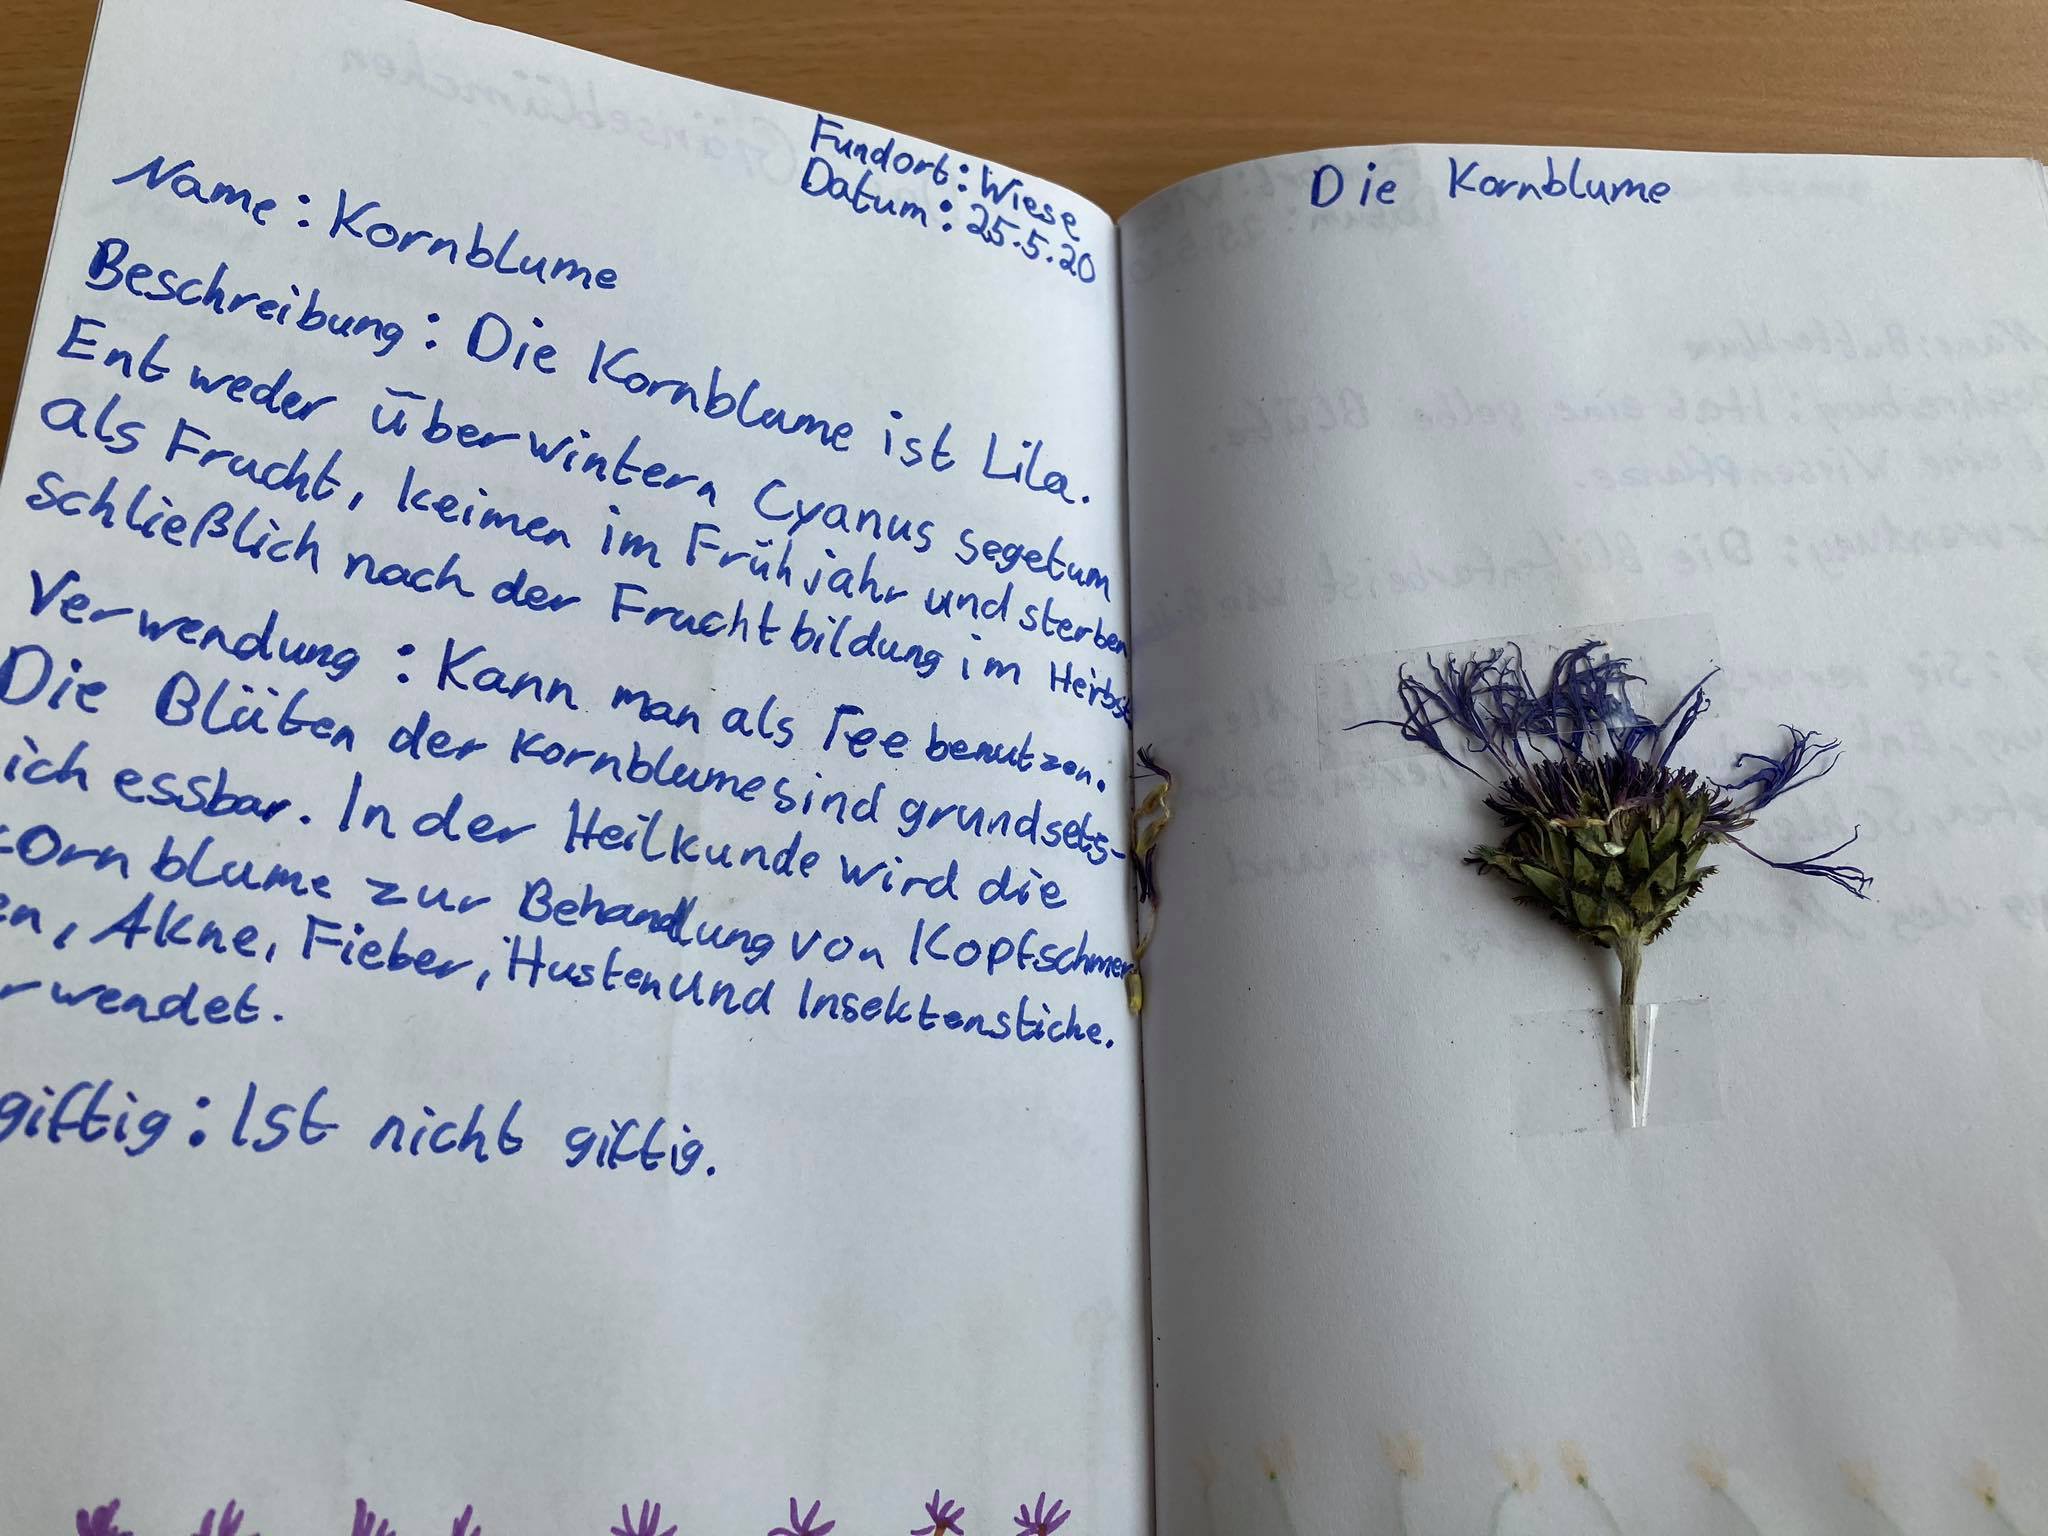 Fundort: Wiese
Datum: 25.5.20
Name: Kornblume
Beschreibung: Die Kornblume ist Lila.
Entweder überwintern Cyanus segetum
als Frucht, keimen im Frühjahr und sterben
schließlich nach der Fruchtbildung im Herbst
Verwendung: Kann man als Tee benutzen.
Die Blüten der Kornblume sind grundsets-
lich essbar. In der Heilkunde wird die
Kornblume zur Behandlung von Kopfschmer
en, Akne, Fieber, Husten und Insektenstiche.
rwendet.
giftig: Ist nicht giftig.
Die Kornblume